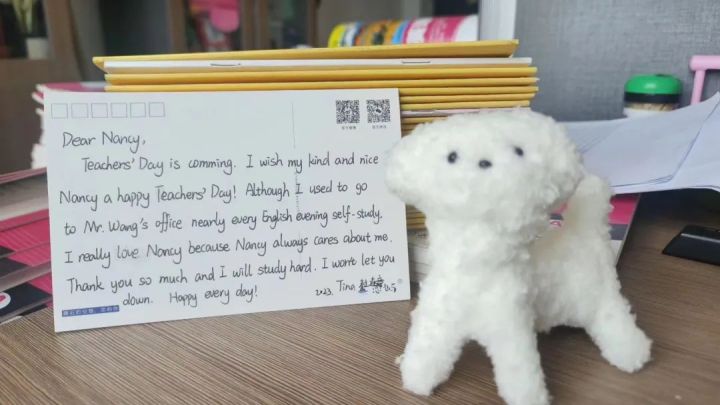 Dear Nancy,
Teachers' Day is comming. I wish my kind and nice
Nancy a happy Teachers' Day! Although I used to go
to Mr. Wang's office nearly every English evening self-study.
I really love Nancy because Nancy always cares about me.
Thank you so much and I will study hard. I won't let you
down. Happy every day!
2023. Tina